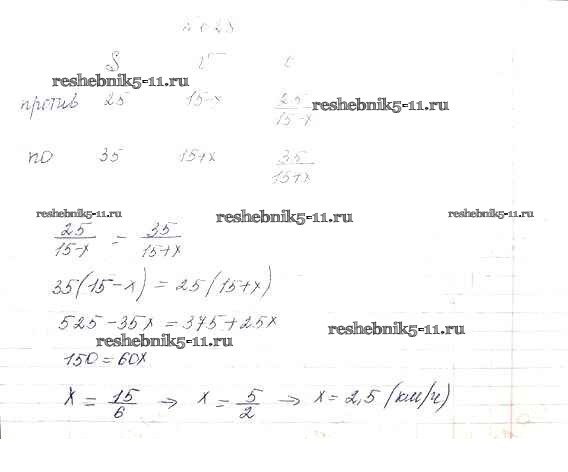 S v t
reshebnik5-11.ru
против 25 15-x 25/(15-x) reshebnik5-11.ru
по 35 15+x 35/(15+x)
reshebnik5-11.ru reshebnik5-11.ru reshebnik5-11.ru
25/(15-x) = 35/(15+x)
35(15-x) = 25(15+x)
525-35x = 375+25x
reshebnik5-11.ru
reshebnik5-11.ru
150 = 60x
x = 15/6 → x = 5/2 → x = 2,5 (км/ч)